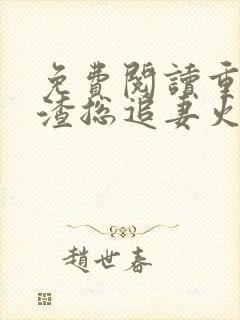 免費閱讀重
渣總追妻火
趙世春